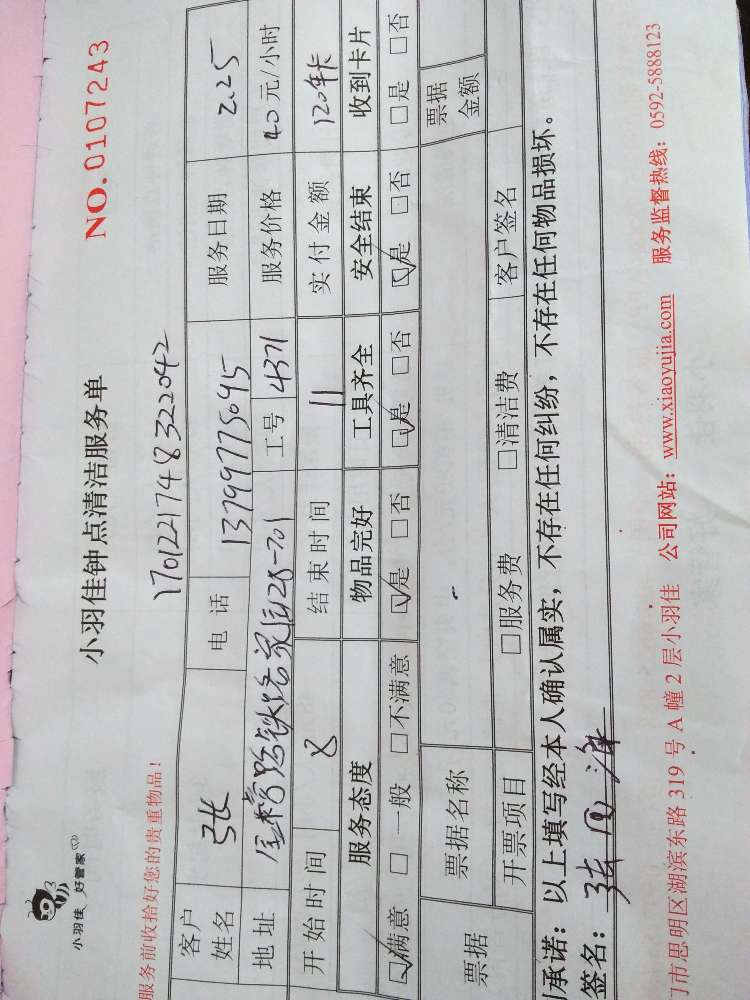 小羽佳 好管家
小羽佳钟点清洁服务单
NO.0107243
服务前收拾好您的贵重物品！
1701221748322042
客户姓名 张 电话 13799775695 服务日期 2.25
地址 金榜路铁路 28-701 工号 4371 服务价格 40元/小时
开始时间 8 结束时间 11 实付金额 120年卡
服务态度 物品完好 工具齐全 安全结束 收到卡片
☑满意 □一般 □不满意 ☑是 □否 ☑是 □否 ☑是 □否 □是 □否
票据 票据名称 票据金额
开票项目 □服务费 □清洁费 客户签名
承诺：以上填写经本人确认属实，不存在任何纠纷，不存在任何物品损坏。
签名：张
门市思明区湖滨东路 319 号 A 幢 2 层小羽佳 公司网站：www.xiaoyujia.com 服务监督热线：0592-5888123